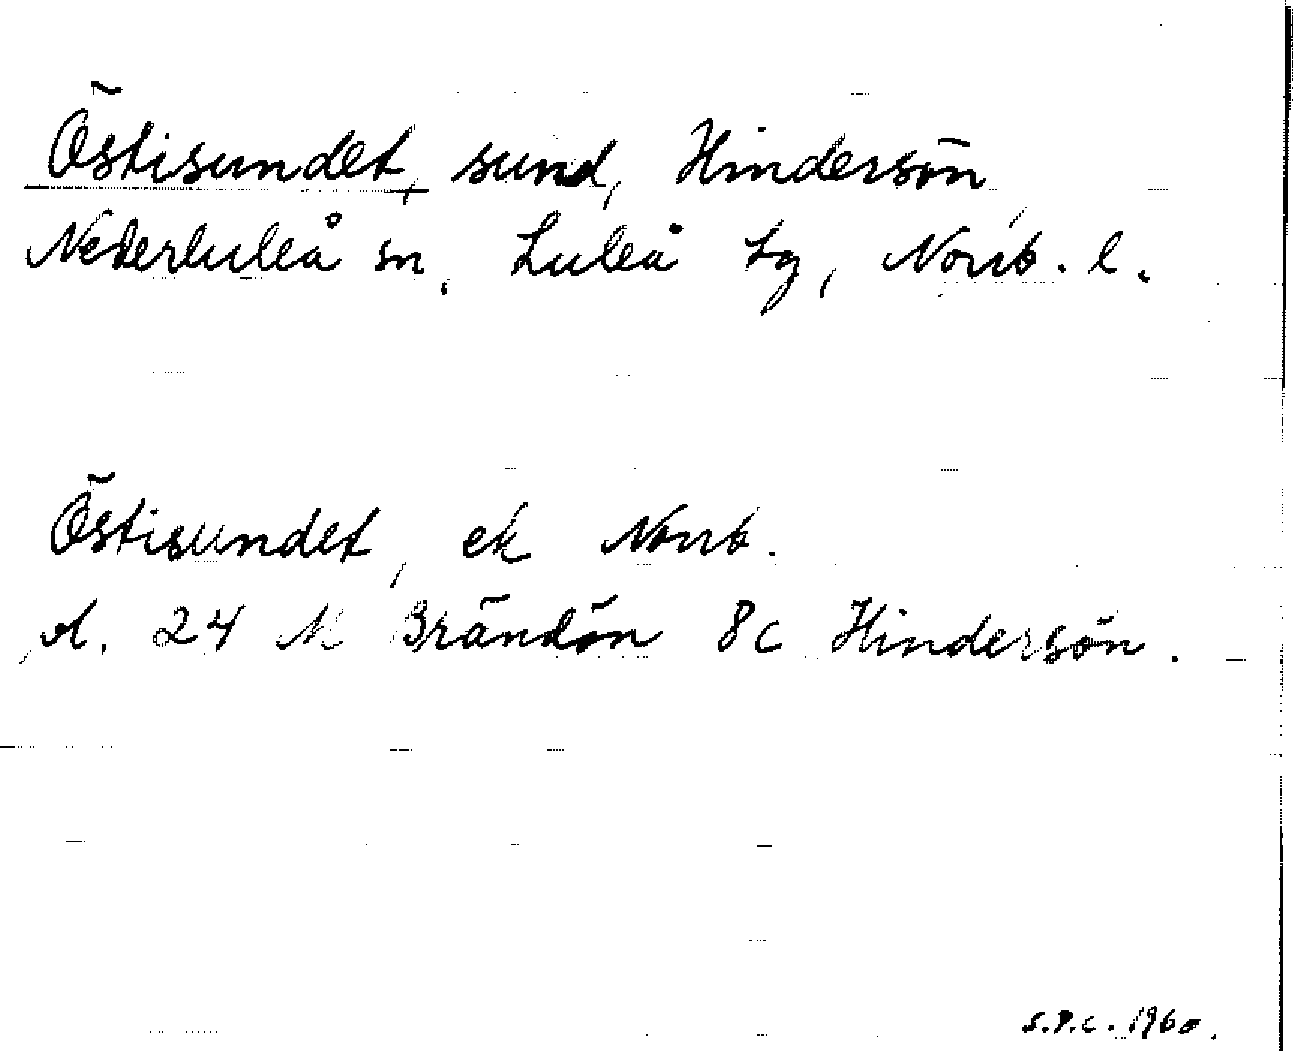 Östisundet, sund, Hindersön
Nederluleå sn, Luleå tg, Norrb. l.
Östisundet, ek Norrb.
A. 24 M Brändön 8c Hindersön.
S.P.C. 1960.